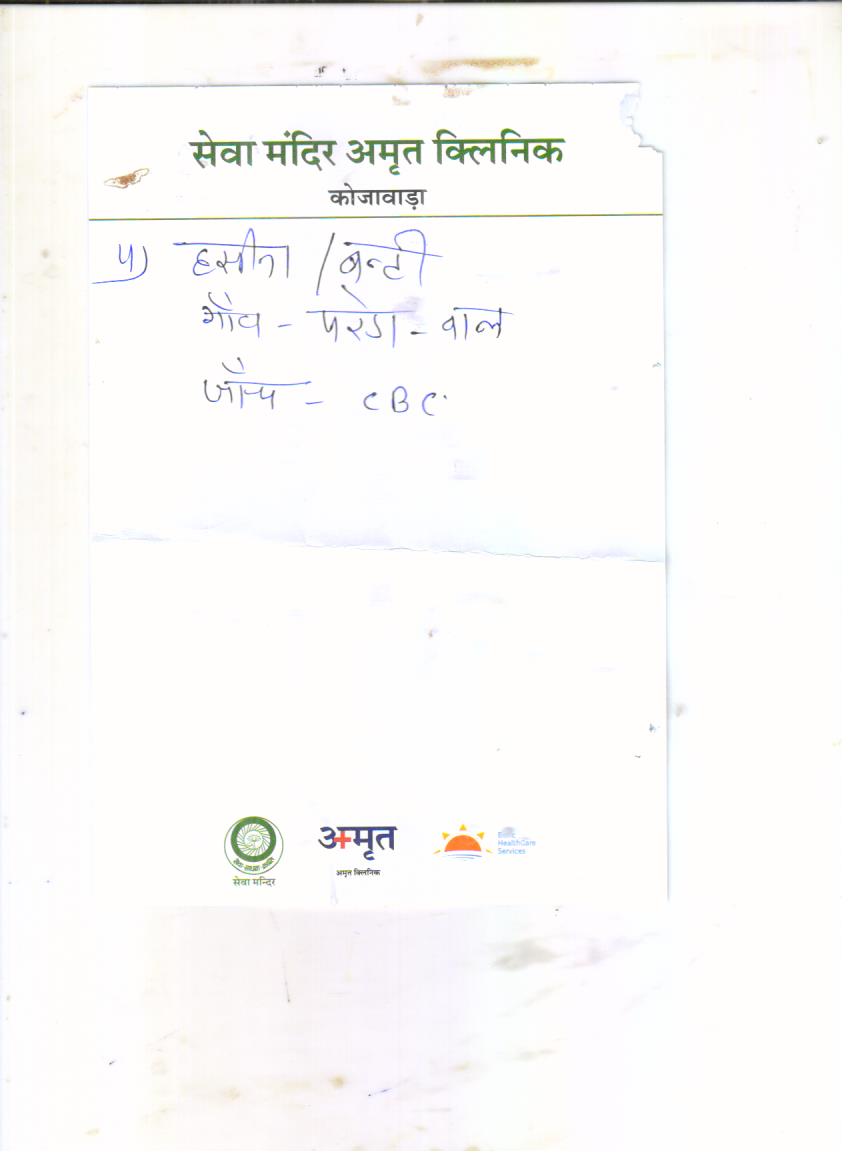 सेवा मंदिर अमृत क्लिनिक
कोजावाड़ा
५) हसीना / बन्टी
गाँव - परेडा - वाल
जाँच - CBC
सेवा मन्दिर
अमृत
अमृत क्लिनिक
HealthCare
Services